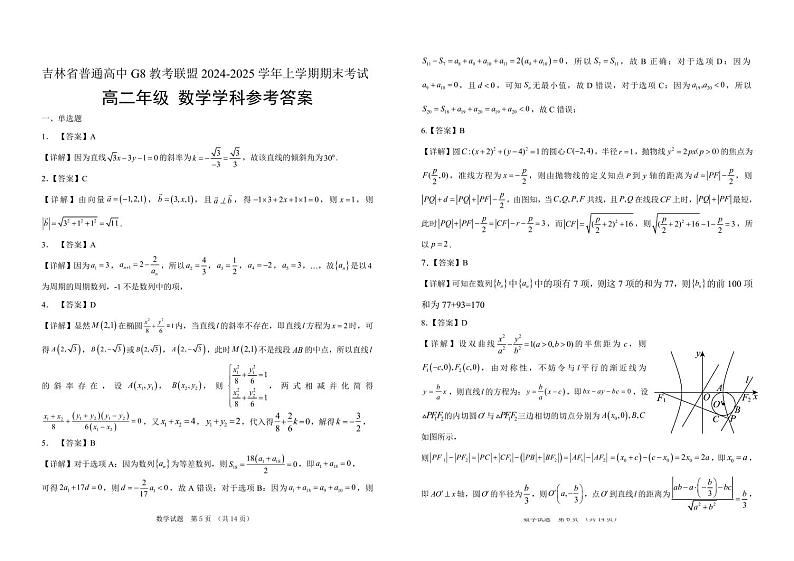 吉林省普通高中 G8 教考联盟 2024-2025 学年上学期期末考试
高二年级 数学学科参考答案
一、单选题
1. 【答案】A
【详解】因为直线√3x-3y-1=0的斜率为k=-√3/-3=√3/3，故该直线的倾斜角为30°.
2.【答案】C
【详解】由向量a=(-1,2,1)，b=(3,x,1)，且a⊥b，得-1×3+2x+1×1=0，则x=1，则
|b|=√(3²+1²+1²)=√11.
3. 【答案】A
【详解】因为a₁=3，aₙ₊₁=2-2/aₙ，所以a₂=4/3，a₃=1/2，a₄=-2，a₅=3，…，故{aₙ}是以4
为周期的周期数列，-1不是数列中的项，
4. 【答案】D
【详解】显然M(2,1)在椭圆x²/8+y²/6=1内，当直线l的斜率不存在，即直线l方程为x=2时，可
得A(2,√3)，B(2,-√3)或B(2,√3)，A(2,-√3)，此时M(2,1)不是线段AB的中点，所以直线l
的斜率存在，设A(x₁,y₁)，B(x₂,y₂)，则{x₁²/8+y₁²/6=1 x₂²/8+y₂²/6=1，两式相减并化简得
(x₁+x₂)/8+(y₁+y₂)(y₁-y₂)/6(x₁-x₂)=0，又x₁+x₂=4，y₁+y₂=2，代入得4/8+2/6k=0，解得k=-3/2，
5. 【答案】B
【详解】对于选项A：因为数列{aₙ}为等差数列，则S₁₈=18(a₁+a₁₈)/2=0，即a₁+a₁₈=0，
可得2a₁+17d=0，则d=-2/17a₁<0，故A错误；对于选项B：因为a₁+a₁₈=a₉+a₁₀=0，则
数学试题 第 5 页 （共 14 页）
S₁₁-S₇=a₈+a₉+a₁₀+a₁₁=2(a₉+a₁₀)=0，所以S₇=S₁₁，故B正确；对于选项D：因为
a₉+a₁₀=0，且d<0，可知Sₙ无最小值，故D错误，对于选项C：因为a₁₉,a₂₀<0，所以
S₂₀=S₁₈+a₁₉+a₂₀=a₁₉+a₂₀<0，故C错误；
6.【答案】B
【详解】圆C:(x+2)²+(y-4)²=1的圆心C(-2,4)，半径r=1，抛物线y²=2px(p>0)的焦点为
F(p/2,0)，准线方程为x=-p/2，则由抛物线的定义知点P到y轴的距离为d=|PF|-p/2，则
|PQ|+d=|PQ|+|PF|-p/2，由图知，当C,Q,P,F共线，且P,Q在线段CF上时，|PQ|+|PF|最短，
此时|PQ|+|PF|-p/2=|CF|-r-p/2=3，而|CF|=√((p/2+2)²+16)，则√((p/2+2)²+16)-1-p/2=3，所
以p=2.
7.【答案】B
【详解】可知在数列{bₙ}中{aₙ}中的项有7项，则这7项的和为77，则{bₙ}的前100项
和为77+93=170
8.【答案】D
【详解】设双曲线x²/a²-y²/b²=1(a>0,b>0)的半焦距为c，则
F₁(-c,0),F₂(c,0)，由对称性，不妨令与l平行的渐近线为
y=b/a x，则直线l的方程为：y=b/a(x-c)，即bx-ay-bc=0，设
△PF₁F₂的内切圆O′与△PF₁F₂三边相切的切点分别为A(x₀,0),B,C
如图所示，
y
l
F₁
O
A
O′
F₂ x
B
C P
则|PF₁|-|PF₂|=|PC|+|CF₁|-(|PB|+|BF₂|)=|AF₁|-|AF₂|=(x₀+c)-(c-x₀)=2x₀=2a，即x₀=a，
即AO′⊥x轴，圆O′的半径为b/3，则O′(a,-b/3)，点O′到直线l的距离为|ab-a·(-b/3)-bc|/√(a²+b²)=b/3，
数学试题 第 6 页 （共 14 页）